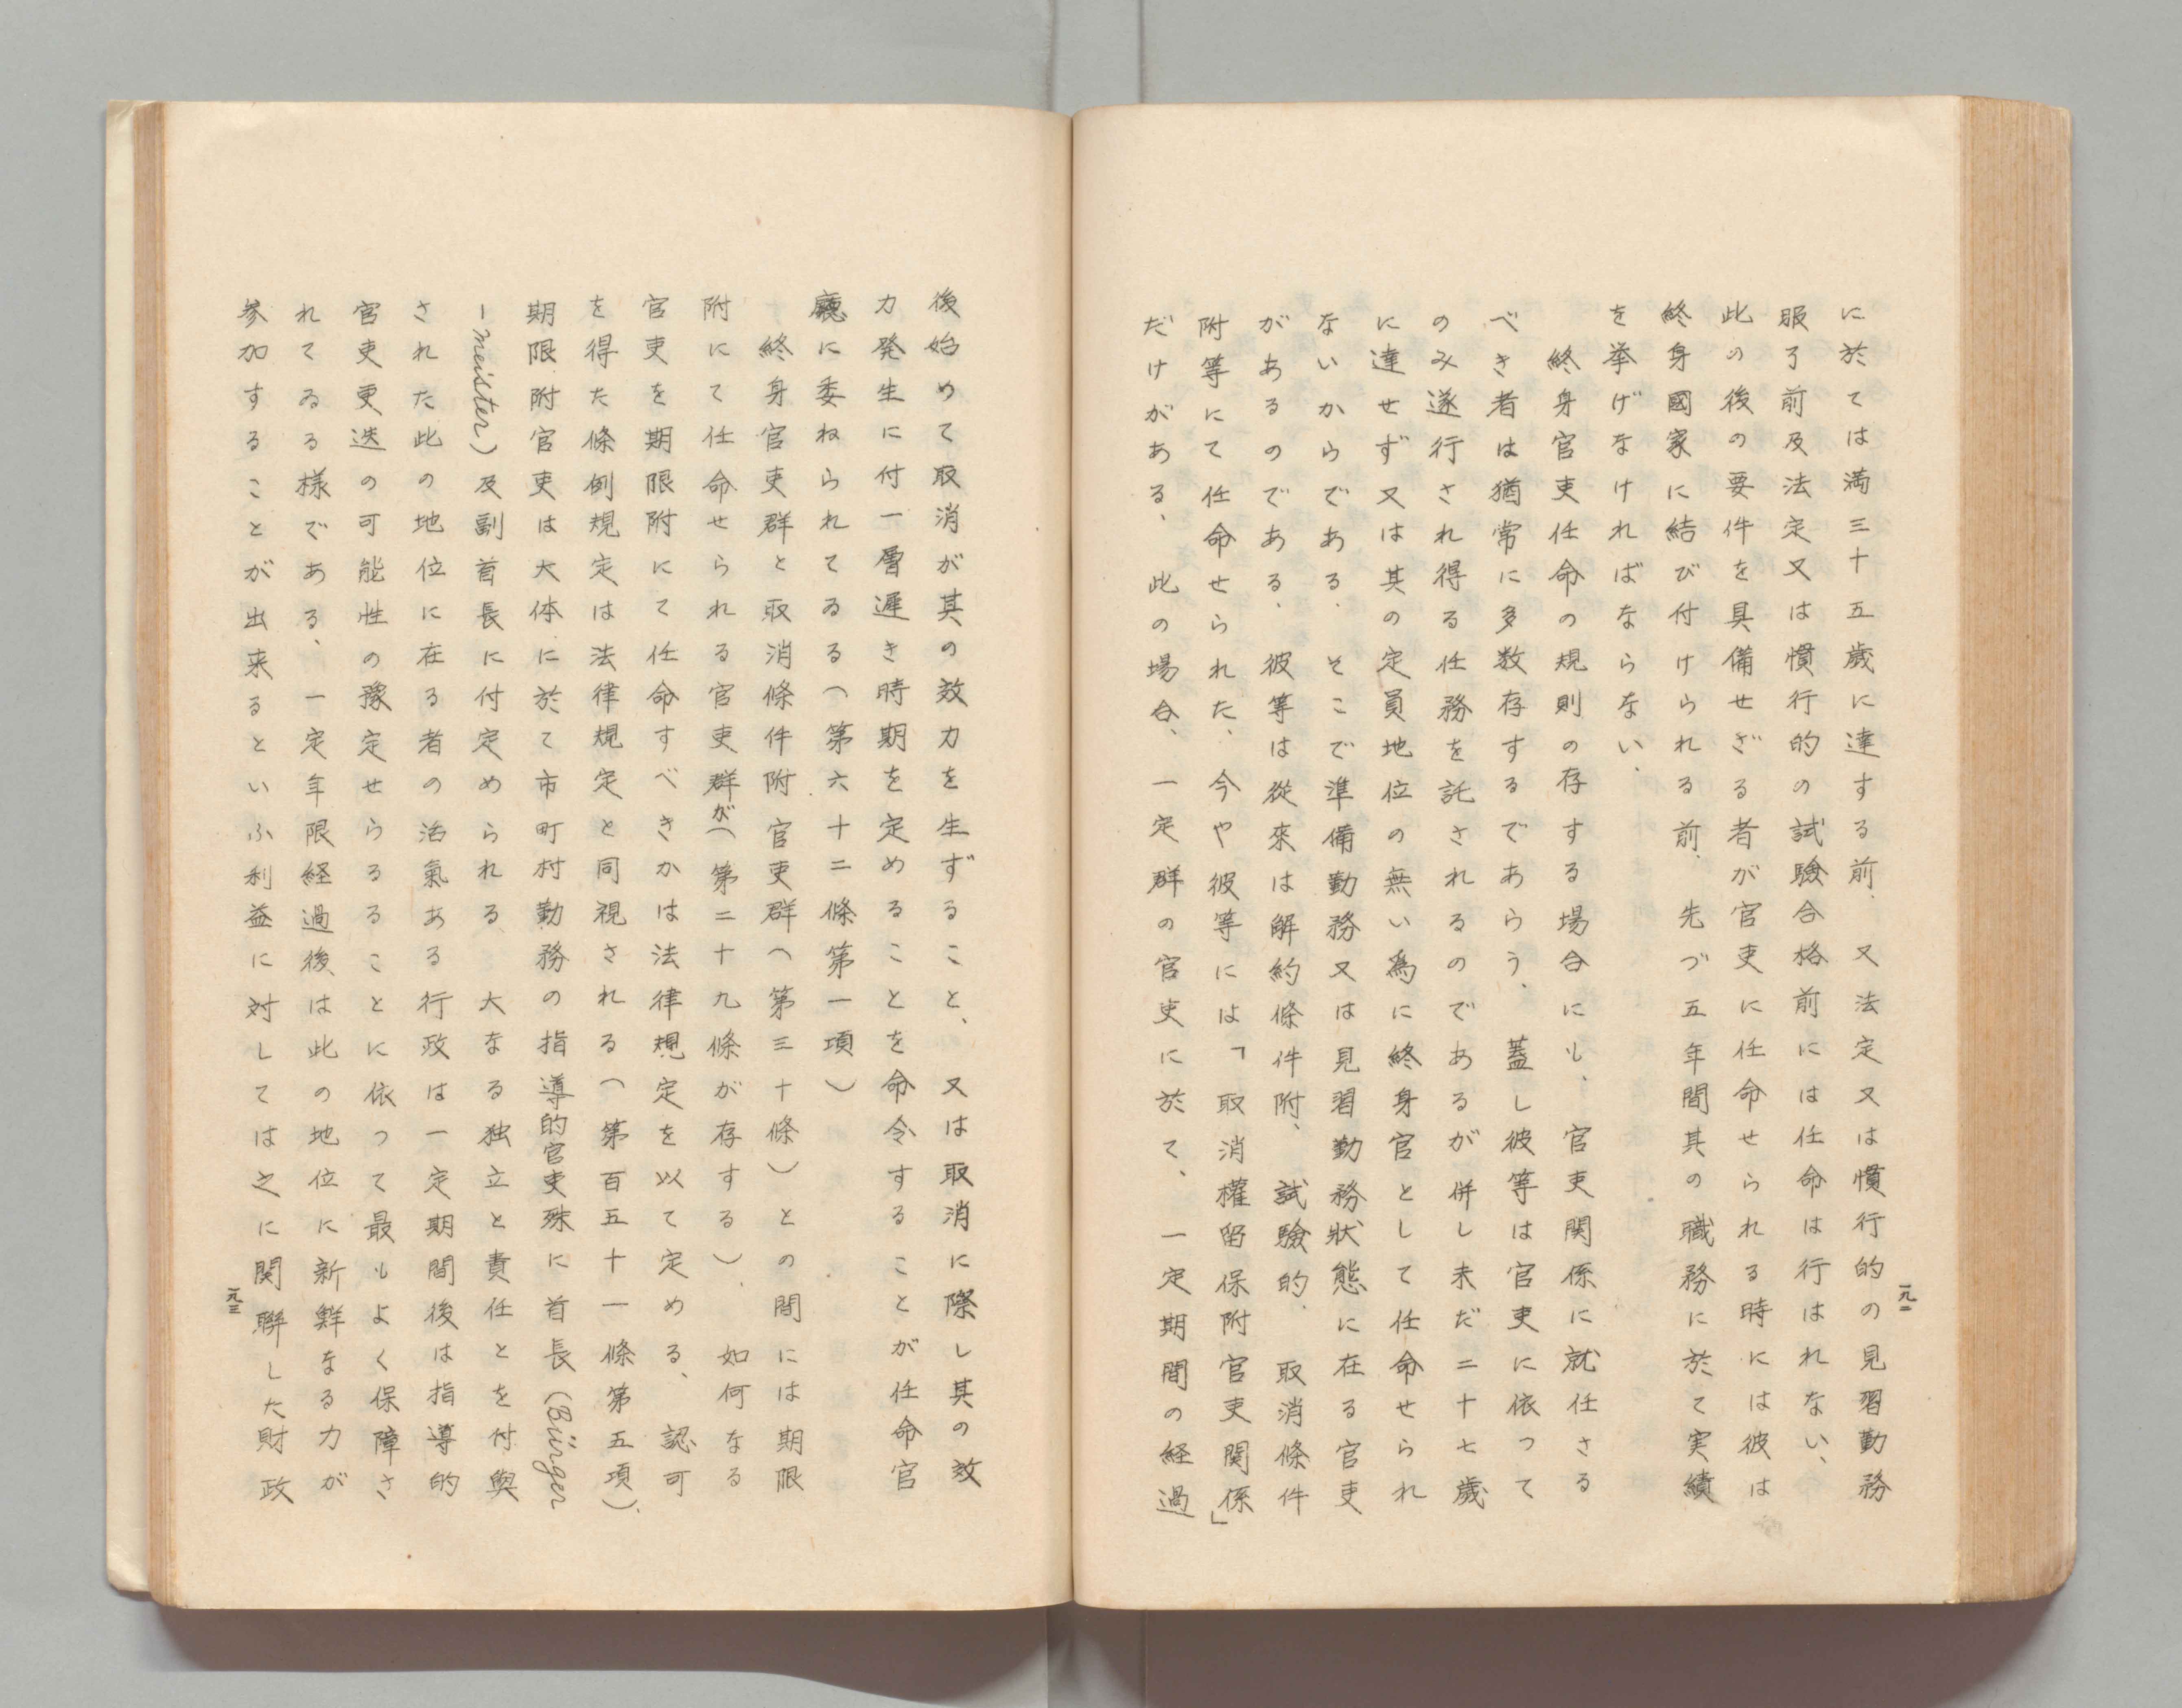 に於ては満三十五歳に達する前、又法定又は慣行的の見習勤務
服了前及法定又は慣行的の試験合格前には任命は行はれない、
此の後の要件を具備せざる者が官吏に任命せられる時には彼は
終身國家に結び付けられる前、先づ五年間其の職務に於て実績
を挙げなければならない、
終身官吏任命の規則の存する場合にも、官吏関係に就任さる
べき者は猶常に多数存するであらう、蓋し彼等は官吏に依って
のみ遂行され得る任務を託されるのであるが併し未だ二十七歳
に達せず又は其の定員地位の無い為に終身官として任命せられ
ないからである、そこで準備勤務又は見習勤務狀態に在る官吏
があるのである、彼等は從來は解約條件附、試驗的、取消條件
附等にて任命せられた、今や彼等には「取消權留保附官吏関係」
だけがある、此の場合、一定群の官吏に於て、一定期間の経過
一九二
後始めて取消が其の效力を生ずること、又は取消に際し其の效
力発生に付一層遅き時期を定めることを命令することが任命官
廳に委ねられてゐる(第六十二條第一項)
終身官吏群と取消條件附官吏群(第三十條)との間には期限
附にて任命せられる官吏群が(第二十九條が存する)、如何なる
官吏を期限附にて任命すべきかは法律規定を以て定める、認可
を得た條例規定は法律規定と同視される(第百五十一條第五項)、
期限附官吏は大体に於て市町村勤務の指導的官吏殊に首長(Bürger
-meister)及副首長に付定められる 大なる独立と責任とを付與
された此の地位に在る者の活氣ある行政は一定期間後は指導的
官吏更迭の可能性の豫定せらるることに依って最もよく保障さ
れてゐる様である、一定年限経過後は此の地位に新鮮なる力が
参加することが出来るといふ利益に対しては之に関聯した財政
一九三